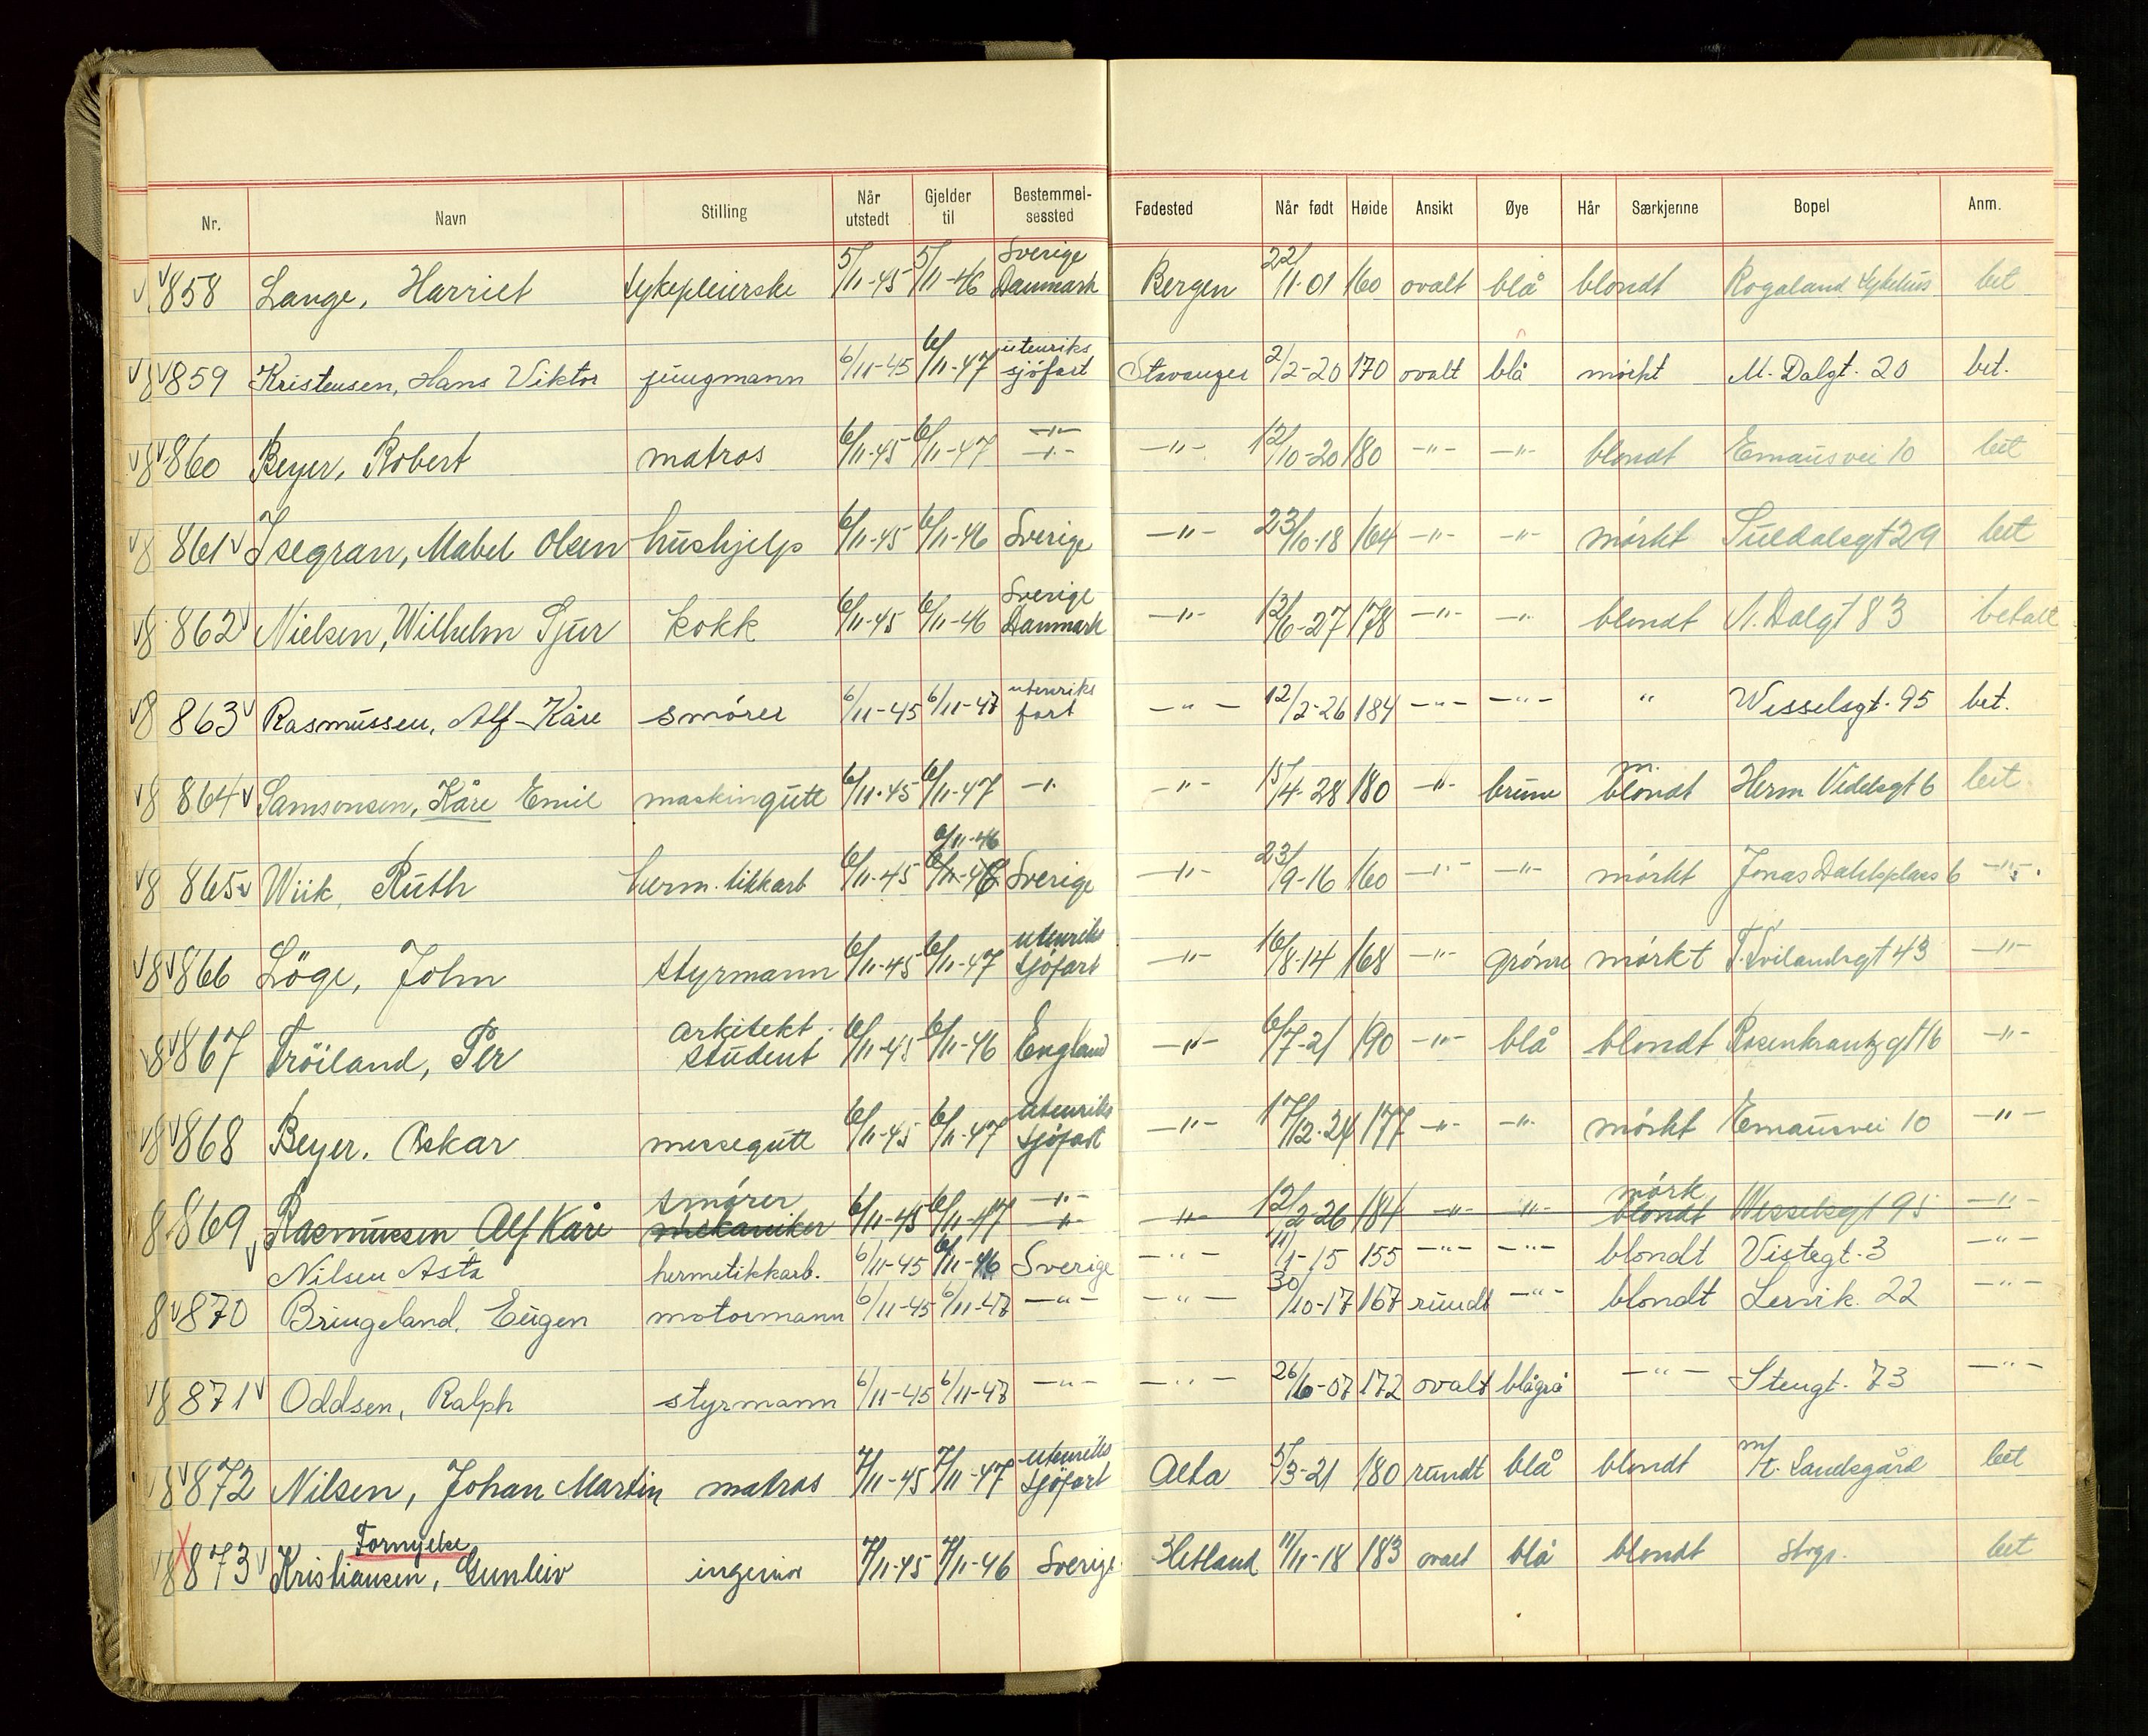 Nr. Navn Stilling Når utstedt Gjelder til Bestemmelsessted Fødested Når født Høide Ansikt Øye Hår Særkjenne Bopel Anm.
858 Lange, Harriet sykepleierske 5/11-45 5/11-46 Sverige Danmark Bergen 22/11-01 160 ovalt blå blondt Rogaland sykehus bet
859 Kristensen, Hans Viktor jungmann 6/11-45 6/11-47 utenriks sjøfart Stavanger 2/2-20 170 ovalt blå mørkt M. Dalgt. 20 bet.
860 Beyer, Robert matros 6/11-45 6/11-47 -"- -"- -"- 12/10-20 180 -"- -"- blondt Emausvei 10 bet
861 Isegran, Mabel Olsen hushjelp 6/11-45 6/11-46 Sverige -"- 23/10-18 164 -"- -"- mørkt Suldalsgt 29 bet
862 Nielsen, Wilhelm Sjur kokk 6/11-45 6/11-46 Sverige Danmark -"- 12/6-27 178 -"- -"- blondt N. Dalgt 83 betalt
863 Rasmussen, Alf-Kåre smører 6/11-45 6/11-47 utenriks fart -"- 12/2-26 184 -"- -"- " Wesselsgt. 95 bet.
864 Samsonsen, Kåre Emil maskingutt 6/11-45 6/11-47 -"- -"- 15/4-28 180 -"- brune m. blondt Herm Videlsgt 6 bet
6/11-46
865 Wiik, Ruth herm.tikkarb 6/11-45 6/11-46 Sverige -"- 23/9-16 160 -"- -"- mørkt Jonas Dahlsplass 6 -"-
866 Löge, John styrmann 6/11-45 6/11-47 utenriks sjøfart -"- 16/8-14 168 -"- grønne mørkt T. Svilandsgt 43 -"-
867 Tröiland, Per arkitekt student 6/11-45 6/11-46 England -"- 6/7-21 190 -"- blå blondt Rosenkrantzgt 16 -"-
868 Beyer, Oskar messegutt 6/11-45 6/11-47 utenriks sjøfart -"- 17/12-24 177 -"- -"- mørkt Emausvei 10 -"-
869 Rasmussen Alf Kåre smører mekaniker 6/11-45 6/11-47 -"- -"- -"- 12/2-26 184 -"- -"- mørk blondt Wesselsgt 95 -"-
Nilsen Asta hermetikkarb. 6/11-45 6/11-46 Sverige -"- 11/1-15 155 -"- -"- blondt Vistegt. 3 -"-
870 Bringeland, Eugen motormann 6/11-45 6/11-47 -"- -"- 30/10-17 167 rundt -"- blondt Lervik. 22 -"-
871 Oddsen, Ralph styrmann 6/11-45 6/11-47 -"- -"- 26/6-07 172 ovalt blågrå -"- Stengt. 73 -"-
872 Nilsen, Johan Martin matros 7/11-45 7/11-47 utenriks sjøfart Alta 5/3-21 180 rundt blå blondt m/t. Sandsgård bet
Fornyelse
873 Kristiansen, Gunleiv ingeniør 7/11-45 7/11-46 Sverige Hetland 11/11-18 183 ovalt blå blondt bet